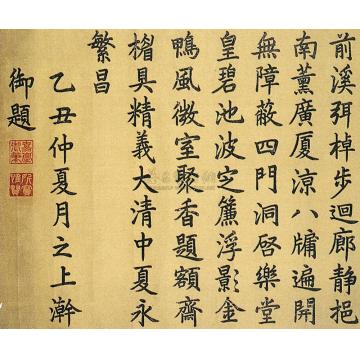 前溪弭棹步迴廊静挹
南薰廣厦涼八牖遍開
無障蔽四門洞啓樂堂
皇碧池波定簾浮影金
鴨風微室聚香題額齋
楣具精義大清中夏永
繁昌
乙丑仲夏月之上澣
御題